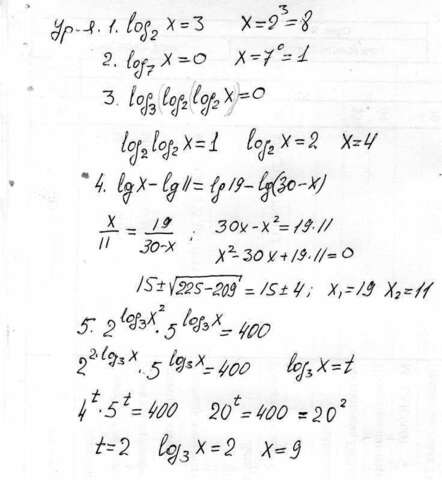 Ур-я. 1. log₂ x = 3   x = 2³ = 8
2. log₇ x = 0   x = 7⁰ = 1
3. log₃(log₂(log₂ x) = 0
log₂ log₂ x = 1   log₂ x = 2   x = 4
4. lg x − lg 11 = lg 19 − lg(30 − x)
x/11 = 19/(30 − x) ;   30x − x² = 19 · 11
x² − 30x + 19 · 11 = 0
15 ± √(225 − 209) = 15 ± 4 ;   x₁ = 19   x₂ = 11
5. 2^(log₃ x²) · 5^(log₃ x) = 400
2^(2·log₃ x) · 5^(log₃ x) = 400   log₃ x = t
4^t · 5^t = 400   20^t = 400 = 20²
t = 2   log₃ x = 2   x = 9